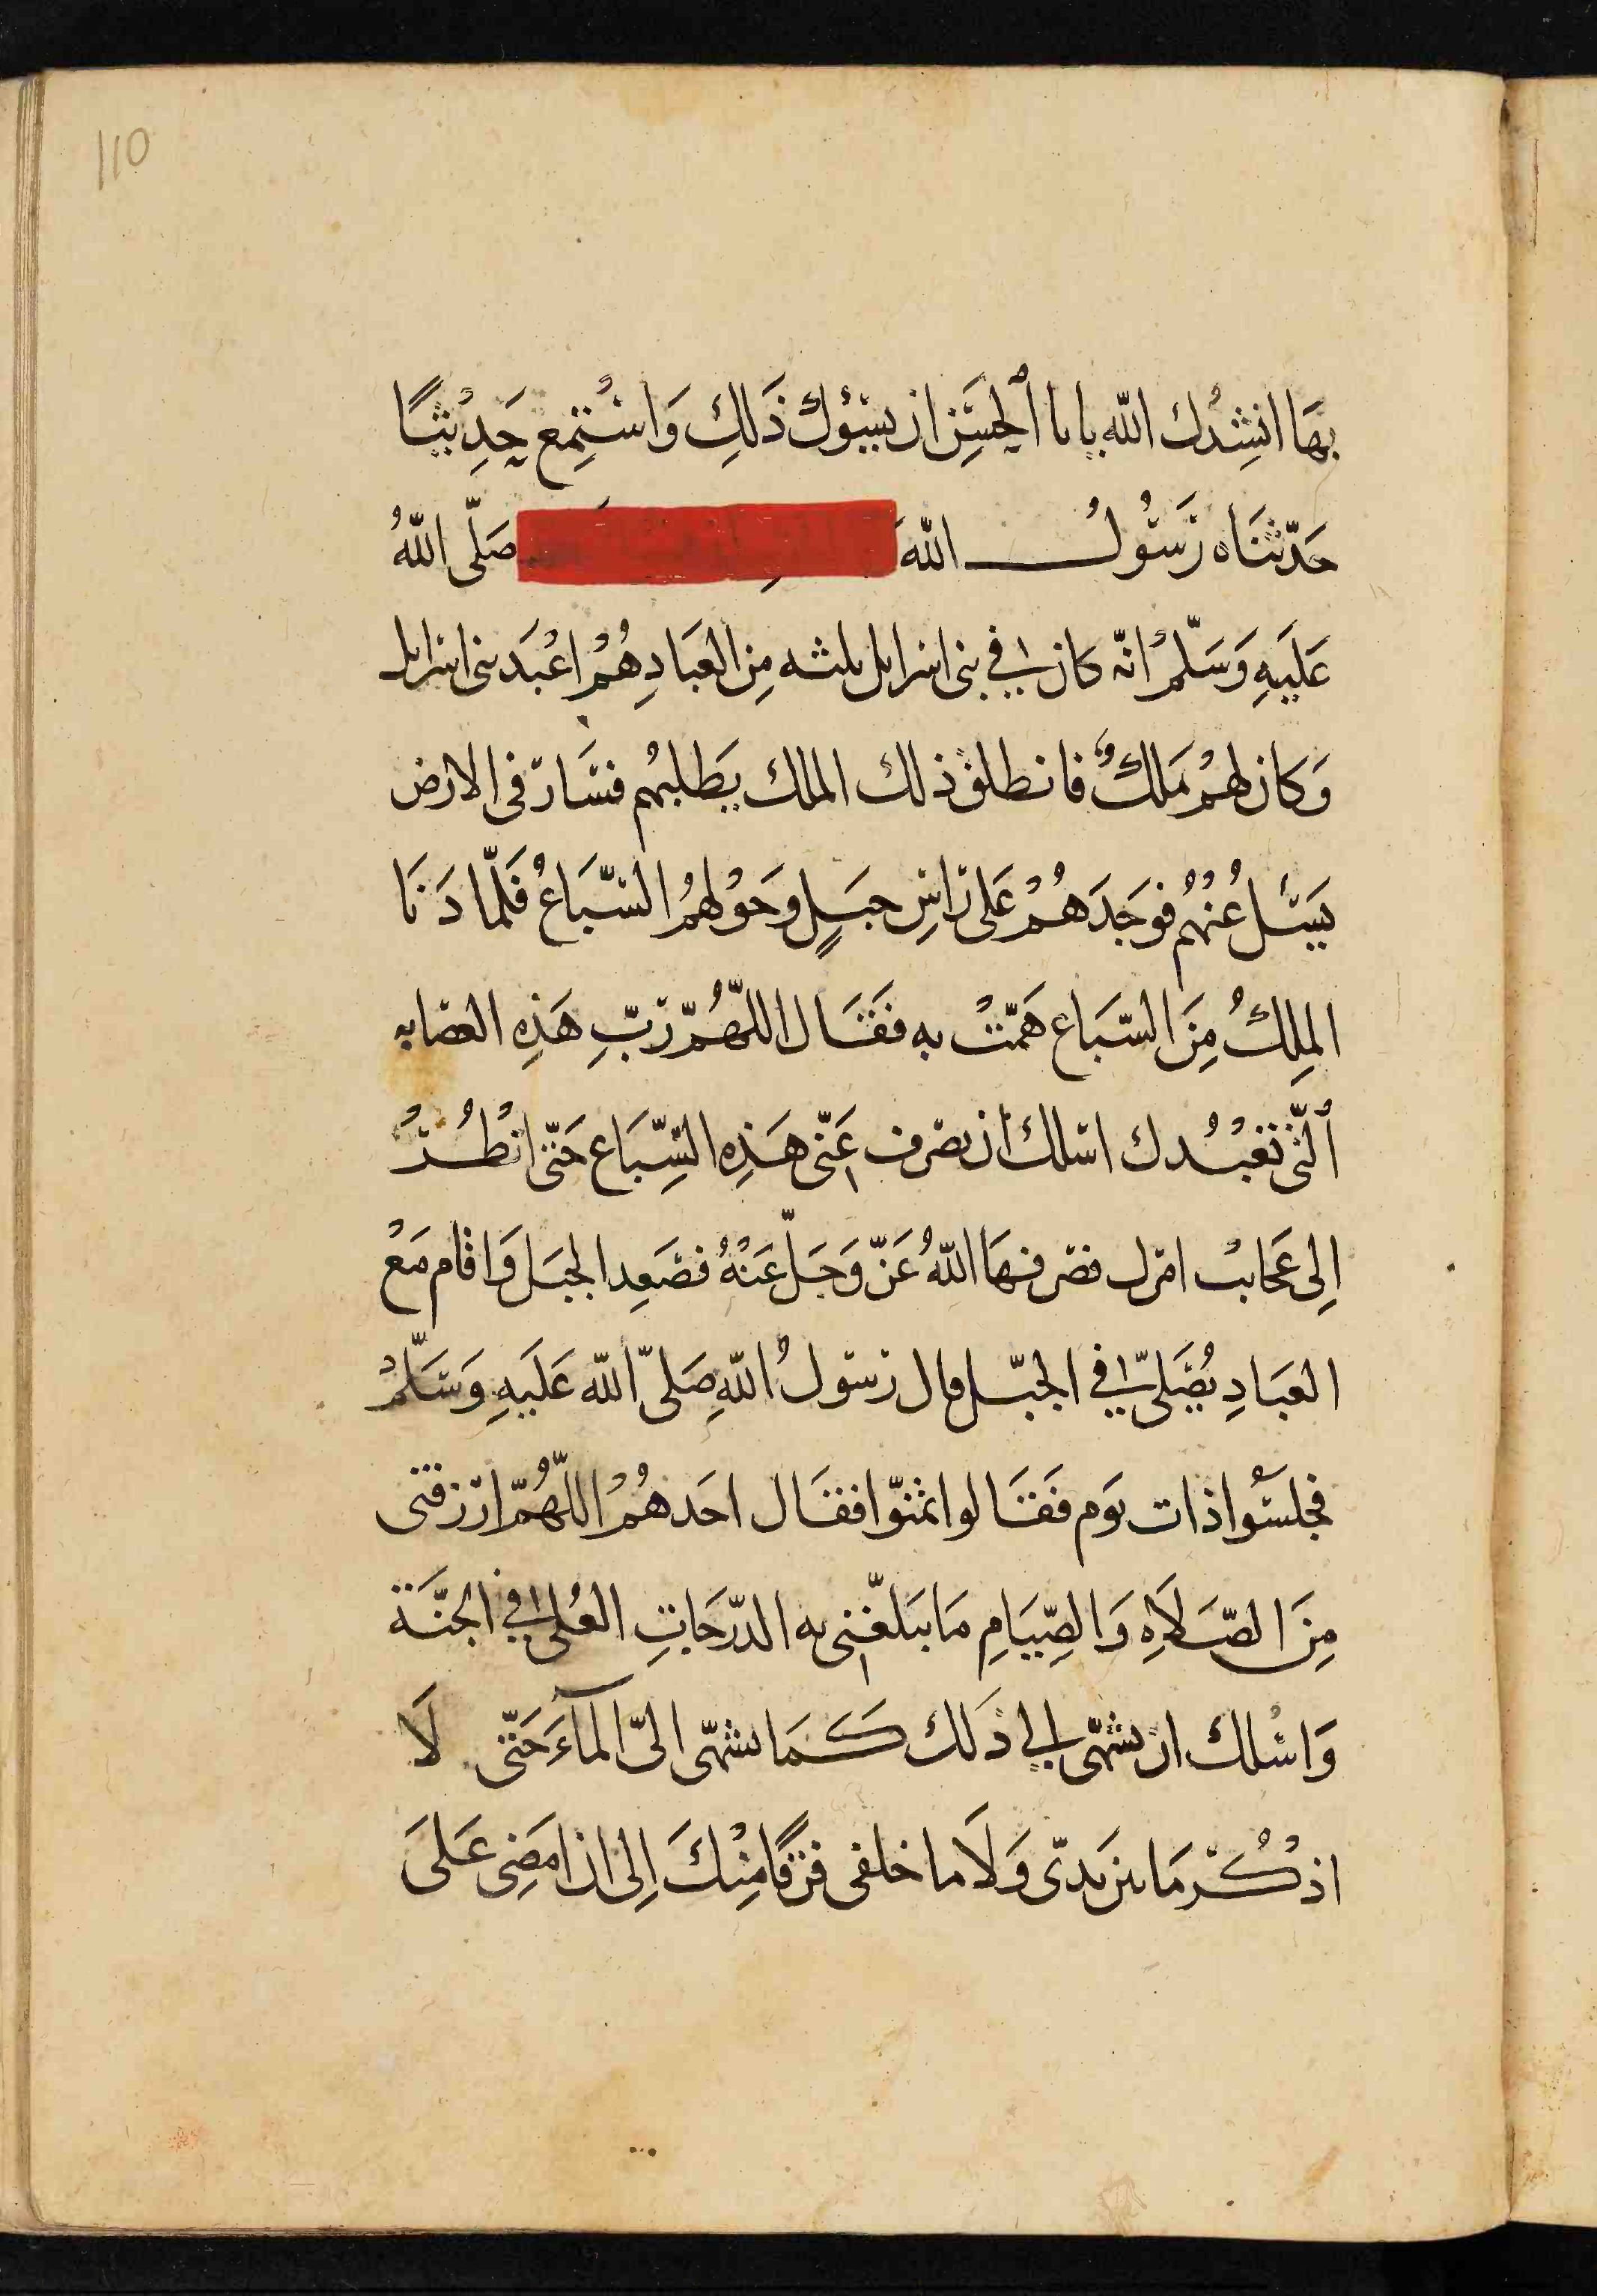 110
بهَا انشِدُك الله يابا ٱلحسَنِ ان يسَؤك ذَلكِ وَاسْتمِع حَدِيْثًا
حَدّثنَاه رَسُولُ اللهَ صَلّى اللهُ
عَليَهِ وَسَلّمْ انّه كان في بنى اسرايل ثلثه مِن العبَادِ هُمْ اعْبَد بنى اسرايل
وَكان لهمْ مَلكٌ فانطلق ذلك الملك يَطلبهُم فسَار فى الارض
يَسَئل عُنهُم فوَجَدَهُمْ عَلى رَاسِ جبَلٍ وحَوْلهمُ السّبَاعُ فَلمّا دَنَا
الملِكُ مِنَ السّبَاع هَمّتْ به فَقَال اللّهُمّ رَبّ هَذِهِ العصَابه
ٱلتّى تعْبُدك اسلك ان تصرف عَنّى هَذِه السِّبَاع حَتّى انْظُرُ
اِلى عَجايبْ امرك فصرفهَا اللهُ عَزّ وَجَلّ عَنْهُ فصَعِد الجبَل وَاقام مَعْ
العبَادِ يُصَلّى في الجبّل قال رَسُولُ اللهِ صَلىّ الله عَليَهِ وَسَلّمْ
فجلسُوا ذات يَوم فَقَالوا تمنّوا فقَال احَدهُمْ اللهُمّ ارزقنى
مِنَ الصّلَاهِ وَالصِّيَامِ مَا يَبلغّنى به الدّرَجَاتِ العُلى في الجنّة
وَاسْلك ان تشهّى الي ذَلك كَمَا تشهّى الىّ المآءَ حَتّى لَا
اذكُرْ مَا بين يَدىّ وَلَا ما خلفى فرَقًا مِنْكَ اِلى ان امَضِى عَلىَ